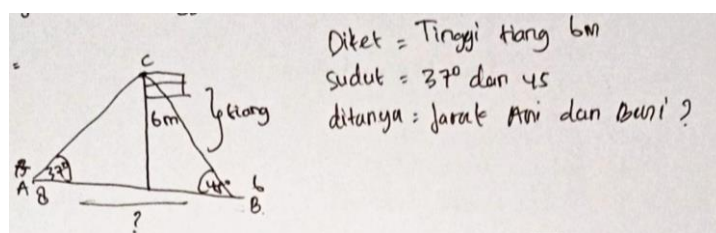 Diket = Tinggi tiang 6m
Sudut = 37° dan 45
ditanya : Jarak Ani dan Budi ?
C
6m
} tiang
37°
A 8
45°
6
B.
?